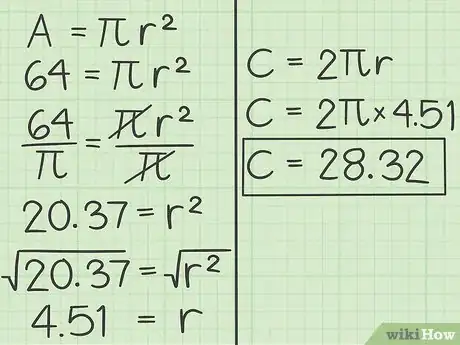 A = πr²
64 = πr²
64/π = πr²/π
20.37 = r²
√20.37 = √r²
4.51 = r
C = 2πr
C = 2π×4.51
C = 28.32
wikiHow